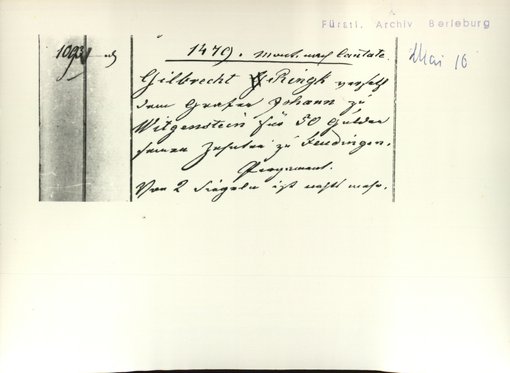 A
Fürstl. Archiv Berleburg
Mai 10
1093
1479. Mont. nach Cantate.
Gilbrecht Ringk versetzt
dem Grafen Johann zu
Witgenstein für 50 Gulden
seinen Zehnten zu Feudingen.
Pergament.
Von 2 Siegeln ist nichts mehr.